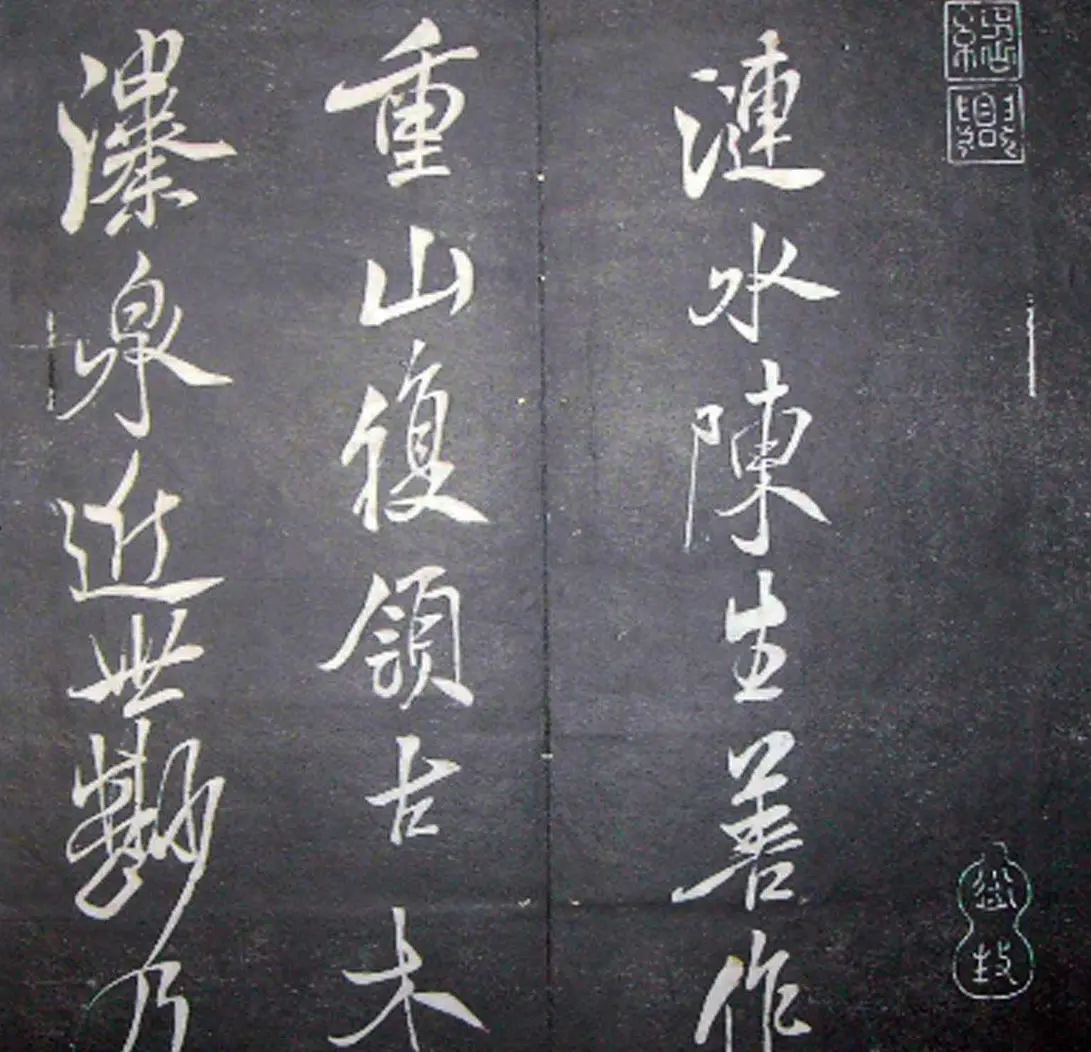 漣水陳生善作
重山復領古木
瀑泉近世勘乃